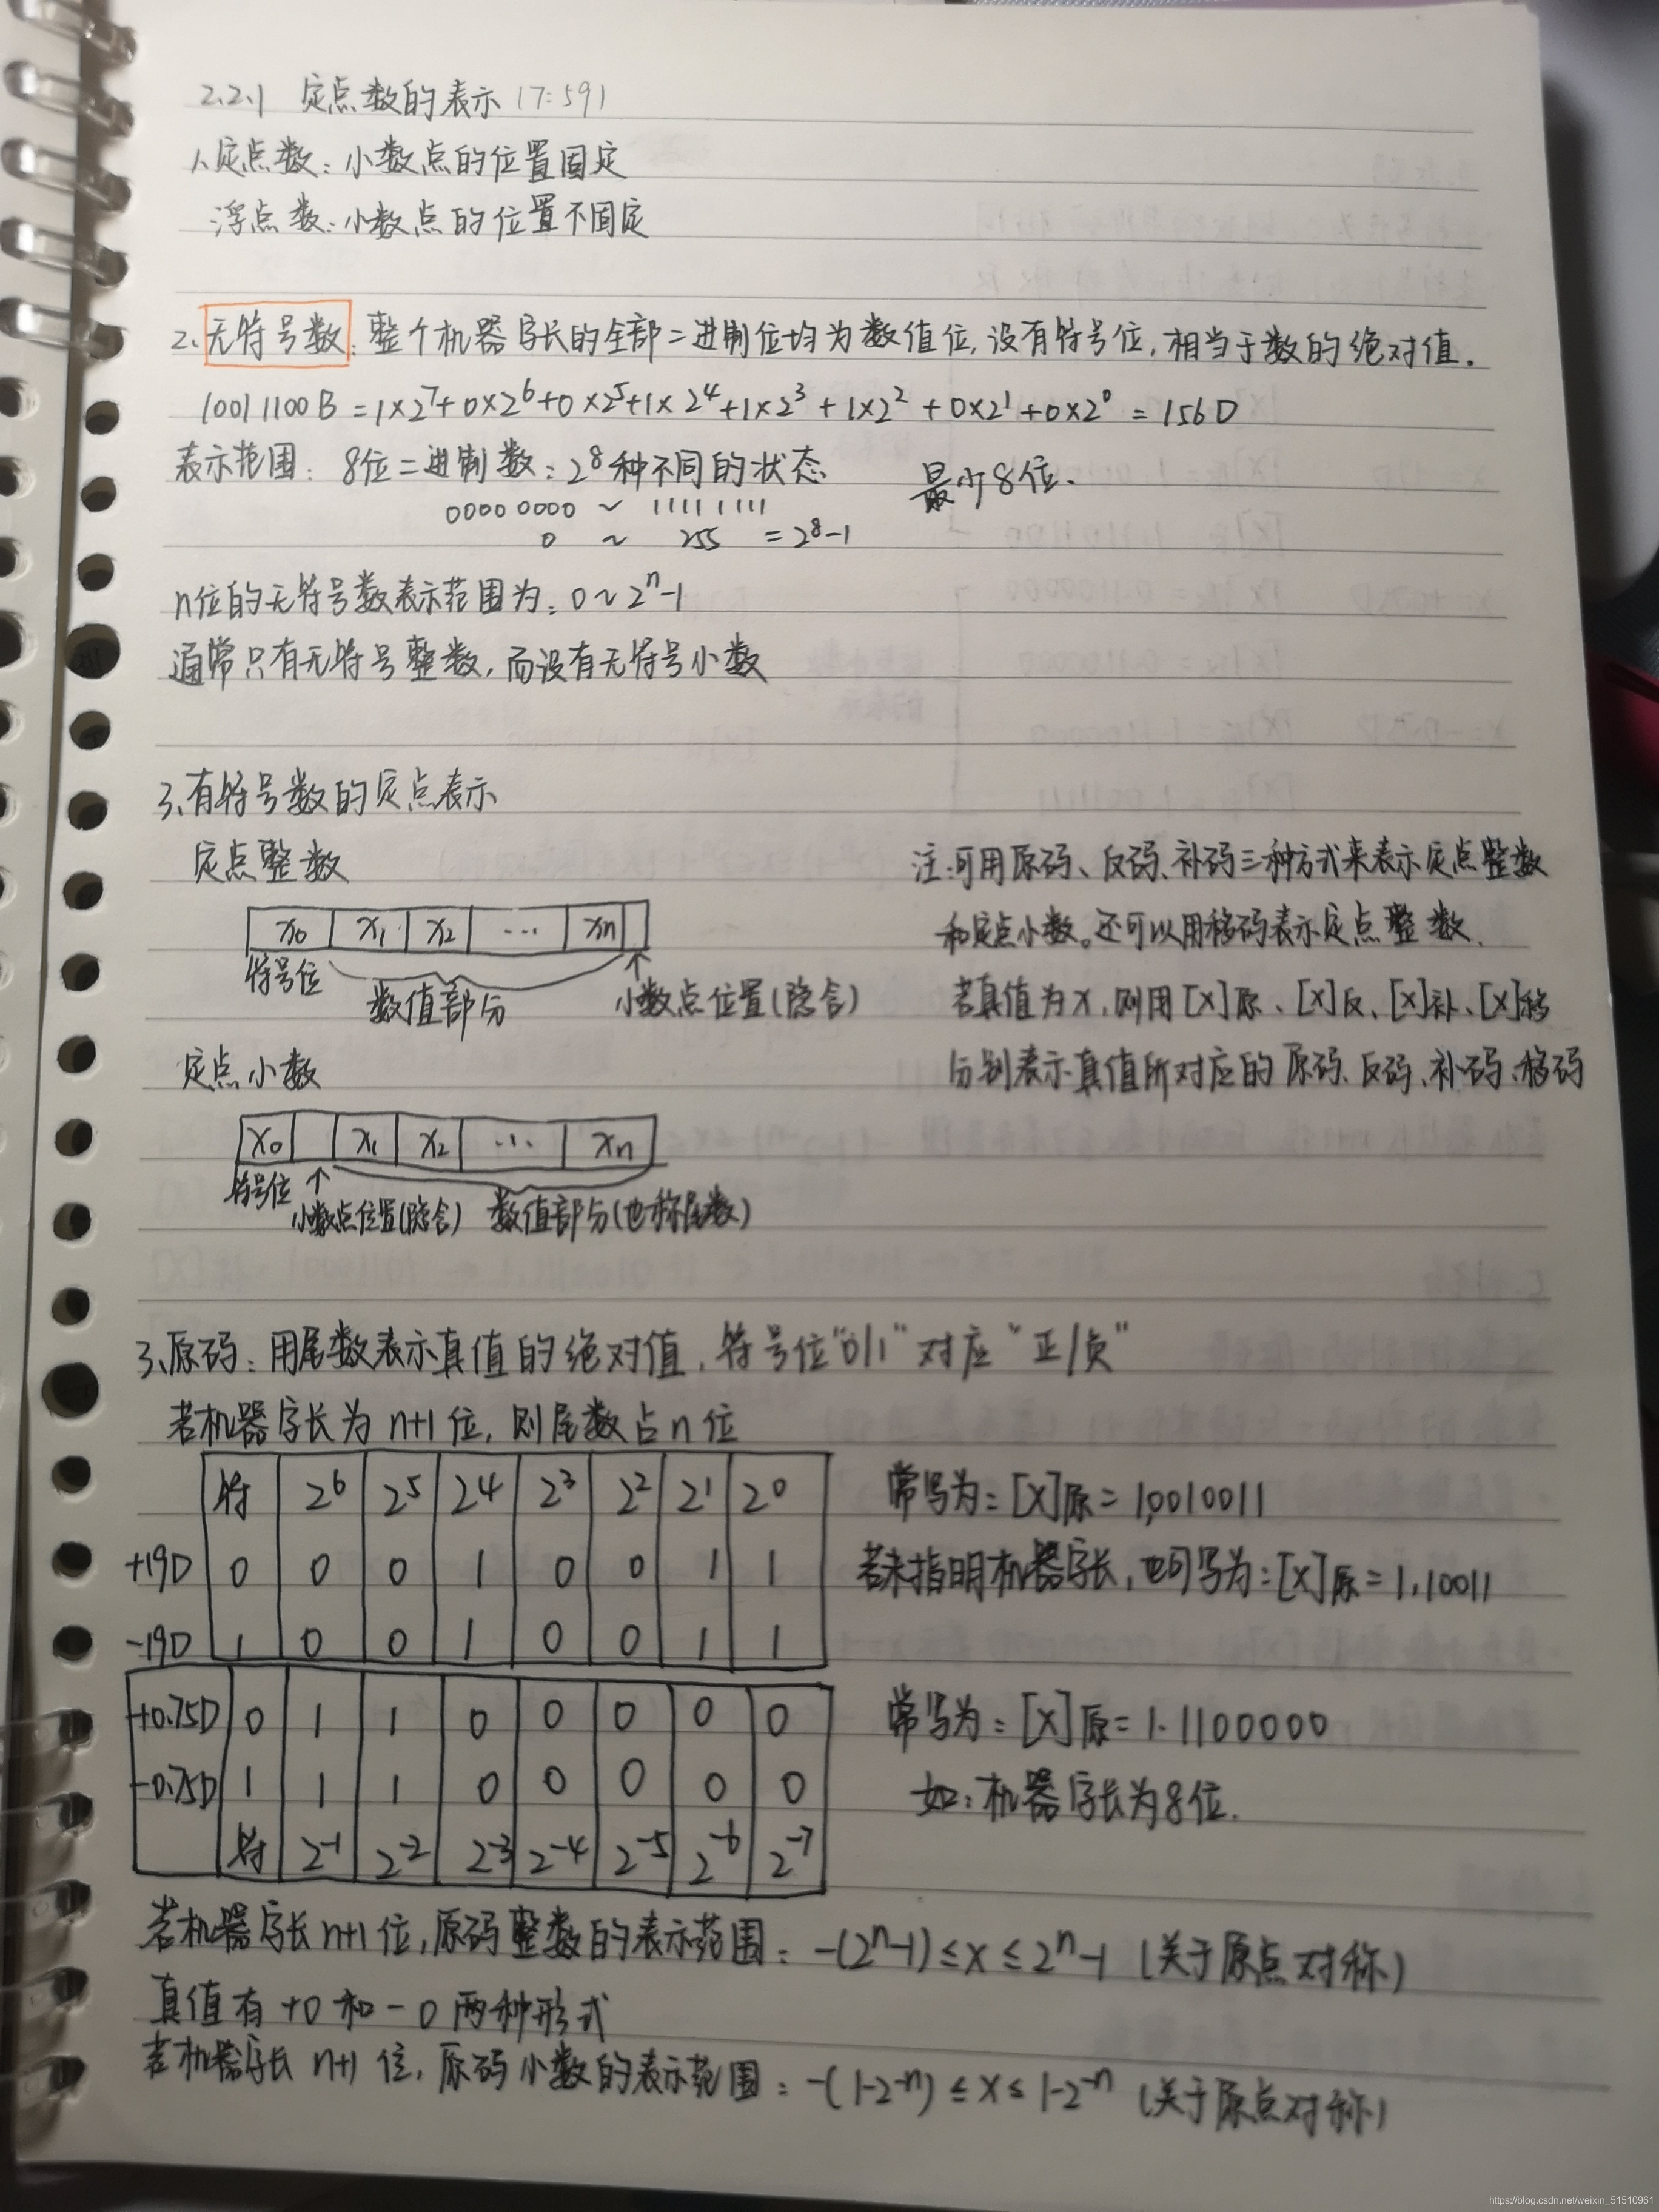 2.2.1 定点数的表示 (7:59)
1、定点数：小数点的位置固定
浮点数：小数点的位置不固定
2、无符号数：整个机器字长的全部二进制位均为数值位，没有符号位，相当于数的绝对值.
10011100B = 1×2⁷+0×2⁶+0×2⁵+1×2⁴+1×2³+1×2²+0×2¹+0×2⁰ = 156D
表示范围：8位二进制数：2⁸种不同的状态 最少8位.
00000000 ~ 11111111
0 ~ 255 = 2⁸-1
n位的无符号数表示范围为：0~2ⁿ-1
通常只有无符号整数，而没有无符号小数
3、有符号数的定点表示
定点整数
x₀ x₁ x₂ ... xn
符号位 数值部分 小数点位置(隐含)
注：可用原码、反码、补码三种方式来表示定点整数
和定点小数。还可以用移码表示定点整数.
若真值为x，则用[x]原、[x]反、[x]补、[x]移
分别表示真值所对应的原码、反码、补码、移码
定点小数
x₀ x₁ x₂ ... xn
符号位 小数点位置(隐含) 数值部分(也称尾数)
3、原码：用尾数表示真值的绝对值，符号位“0/1”对应“正/负”
若机器字长为n+1位，则尾数占n位
符 2⁶ 2⁵ 2⁴ 2³ 2² 2¹ 2⁰
+19D 0 0 0 1 0 0 1 1
-19D 1 0 0 1 0 0 1 1
常写为：[x]原=1,0010011
若未指明机器字长，也可写为：[x]原=1,10011
+0.75D 0 1 1 0 0 0 0 0
-0.75D 1 1 1 0 0 0 0 0
符 2⁻¹ 2⁻² 2⁻³ 2⁻⁴ 2⁻⁵ 2⁻⁶ 2⁻⁷
常写为：[x]原=1.1100000
如：机器字长为8位.
若机器字长n+1位，原码整数的表示范围：-(2ⁿ-1)≤x≤2ⁿ-1 (关于原点对称)
真值有+0和-0两种形式
若机器字长n+1位，原码小数的表示范围：-(1-2⁻ⁿ)≤x≤1-2⁻ⁿ (关于原点对称)
https://blog.csdn.net/weixin_51510961